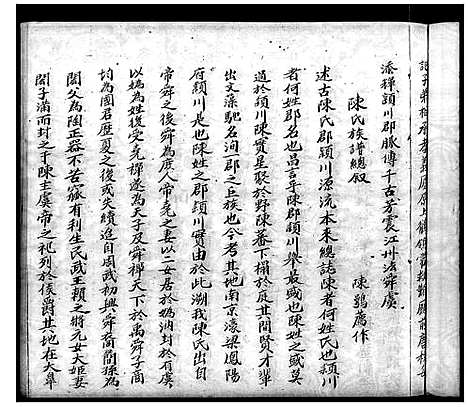 添禪潁川郡脉傳千古芳震江州法舜虞
陳氏族譜總叙
陳鶚薦作
述古陳氏郡潁川源流本末總誌陳者何姓氏也潁川
者何姓郡名也昌言乎陳郡潁川舉最盛也陳姓之盛莫
過於潁川陳寔是聚於野陳蕃下榻於庭其間賢才輩
出文藻馳名洵郡之巨族也今考其地南京濠梁鳳陽
府潁川是也陳姓之郡潁川實由於此溯我陳氏出自
帝舜之後舜為庶人帝堯之妻以二女居於媯汭封於有虞
以媯為姓後受堯禪遂為天子及舜禪天下於禹舜子商
均為國君歷夏之後或失續迨自周武初興舜裔閼孫為
閼父為陶正器不苦窳有利生民武王賴之將元女大姬妻
閼子滿而封之于陳主虞帝之祀列於侯爵其地在大皞